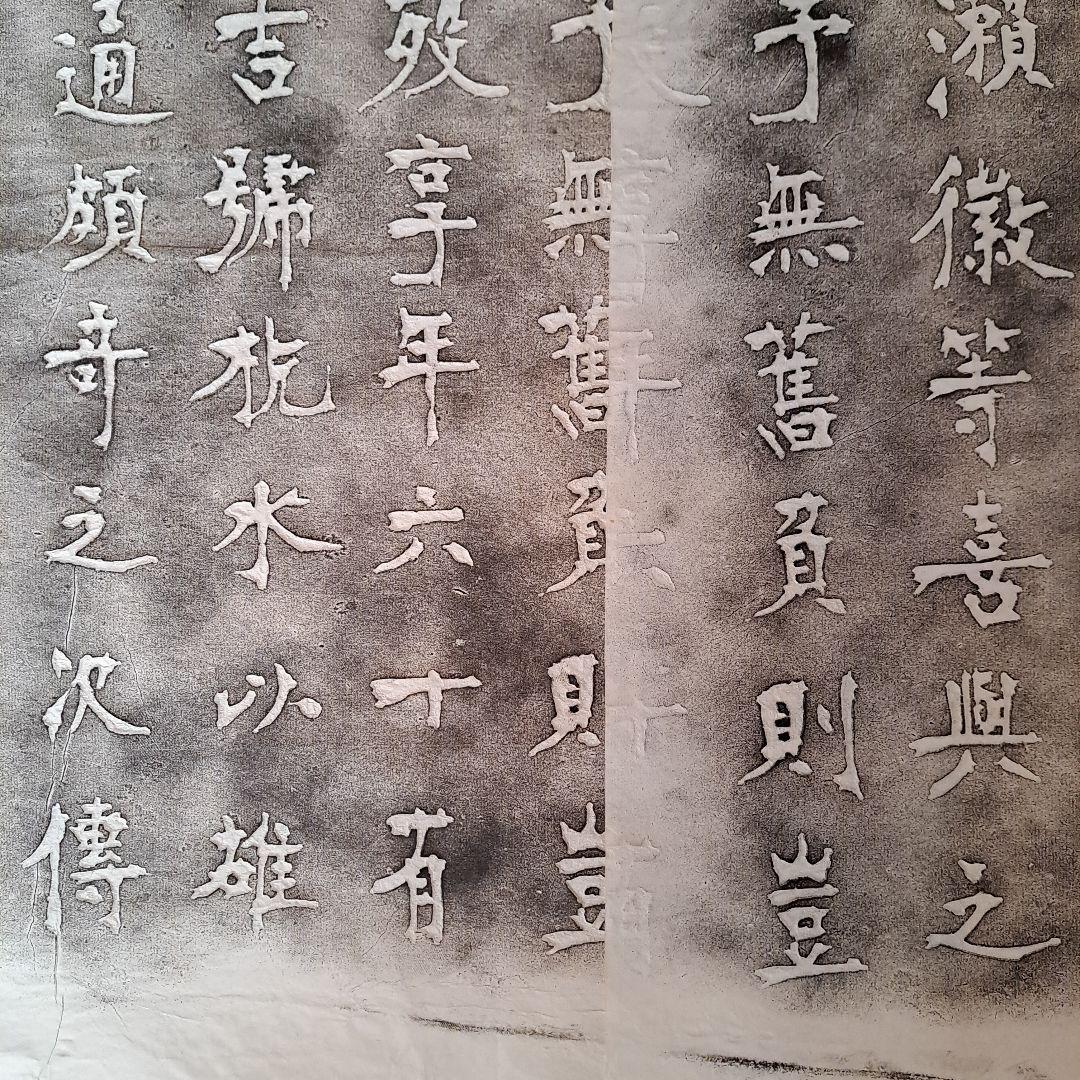 瀨徽等喜與之
予無舊負則豈
無舊負則豈
歿享年六十有
吉號杭水以雄
通頗奇之次傳